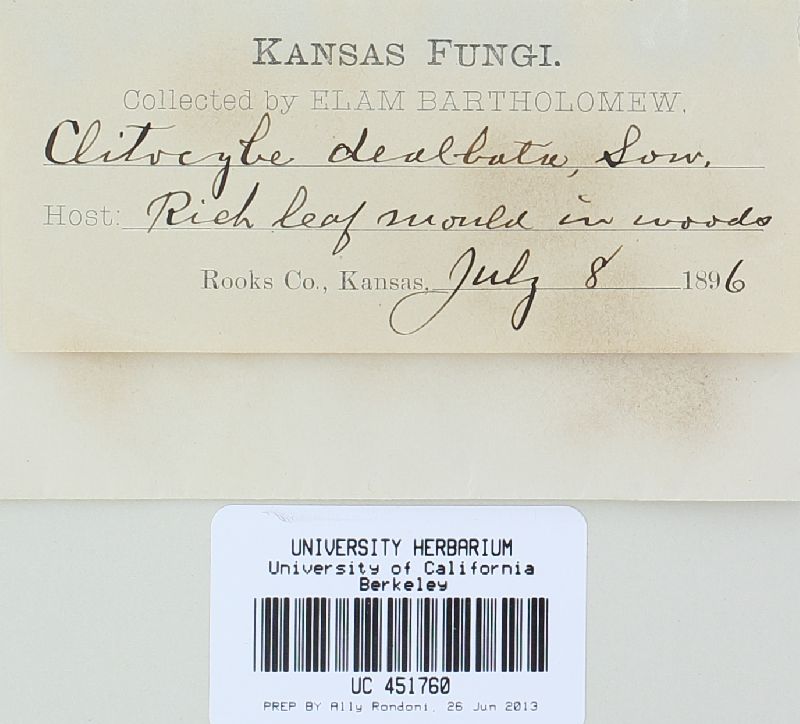 KANSAS FUNGI.
Collected by ELAM BARTHOLOMEW,
Clitocybe dealbata, Sow.
Host: Rich leaf mould in woods
Rooks Co., Kansas, July 8 1896
UNIVERSITY HERBARIUM
University of California
Berkeley
UC 451760
PREP BY Ally Rondoni, 26 Jun 2013